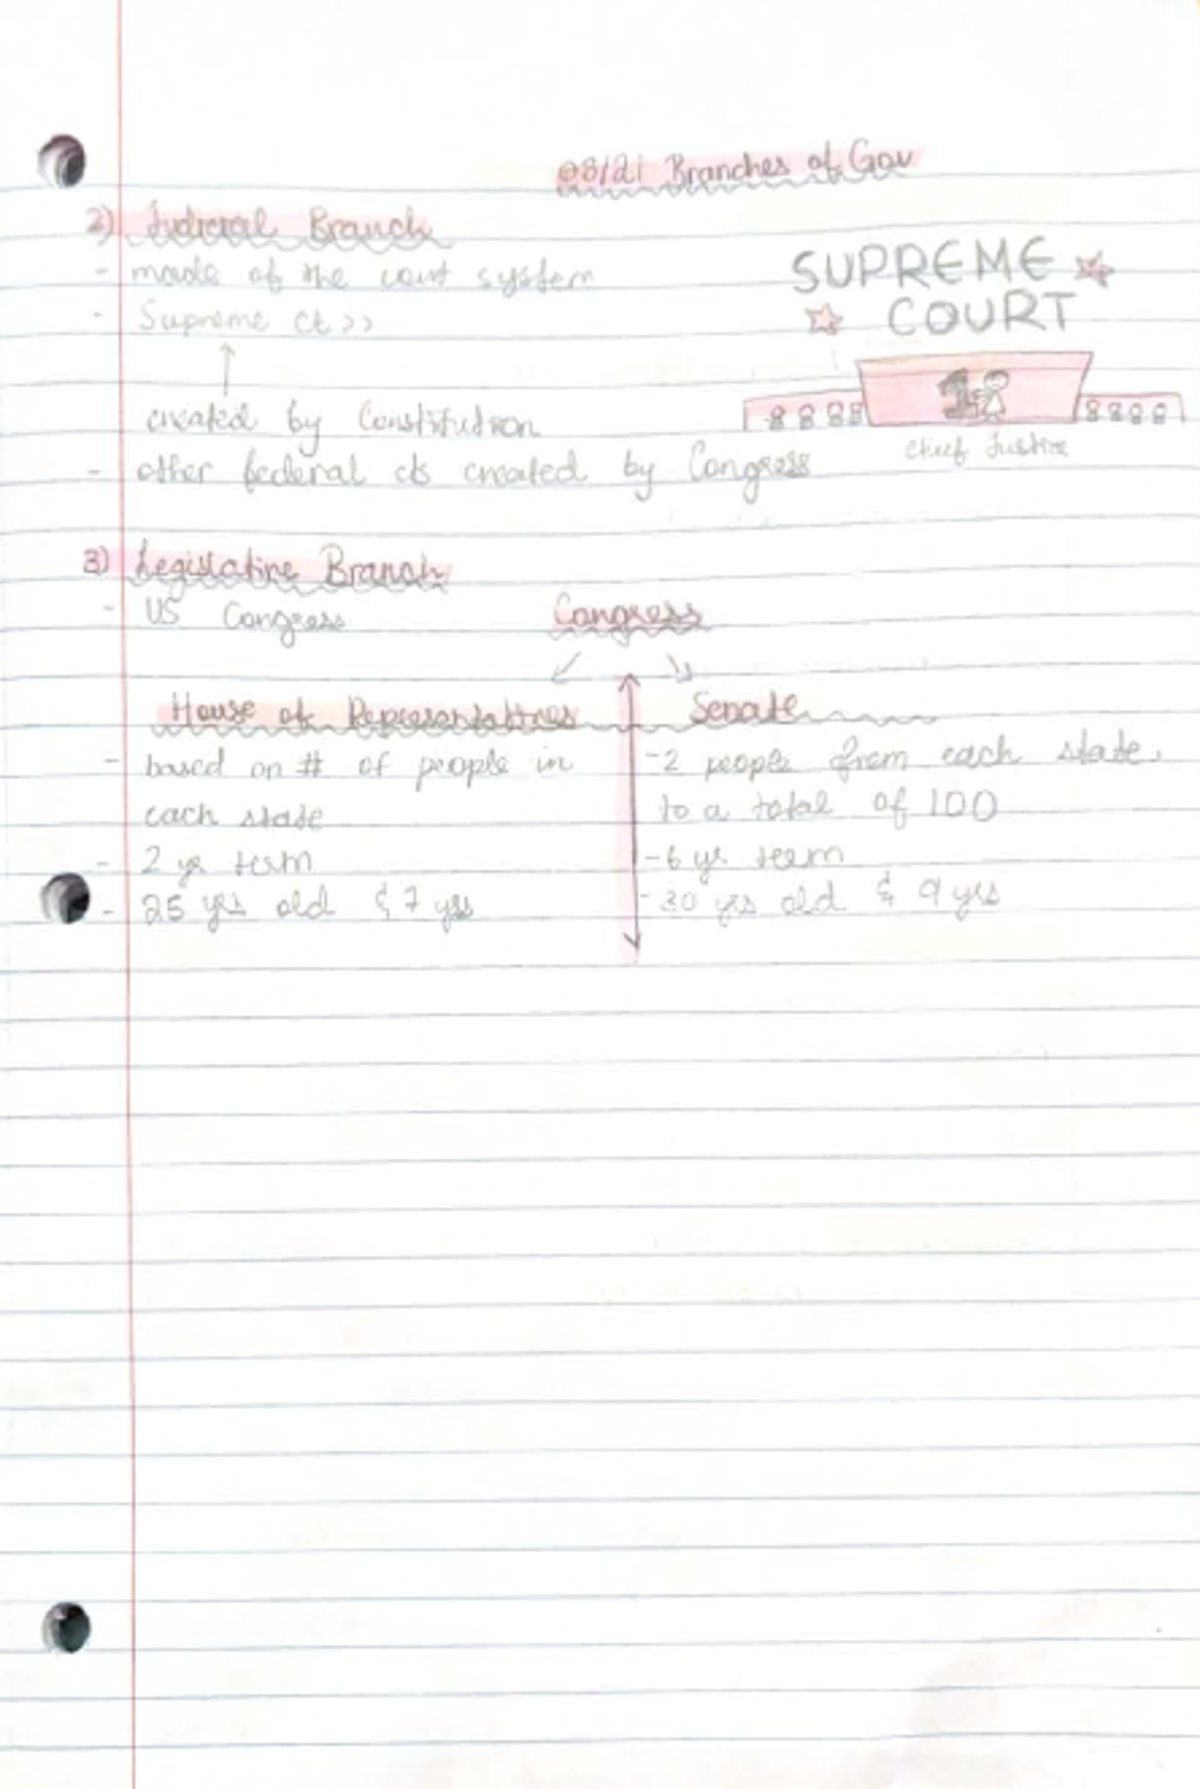 08/21 Branches of Gov
2) Judicial Branch
- made of the court system
- Supreme Ct >>
↑
created by Constitution
- other federal cts created by Congress
SUPREME
COURT
1
Cheif Justice
3) Legislative Branch
- US Congress
Congress
House of Representatives
- based on # of people in
each state
- 2 yr term
- 25 yrs old & 7 yrs
Senate
- 2 people from each state,
to a total of 100
- 6 yr term
- 30 yrs old & 9 yrs